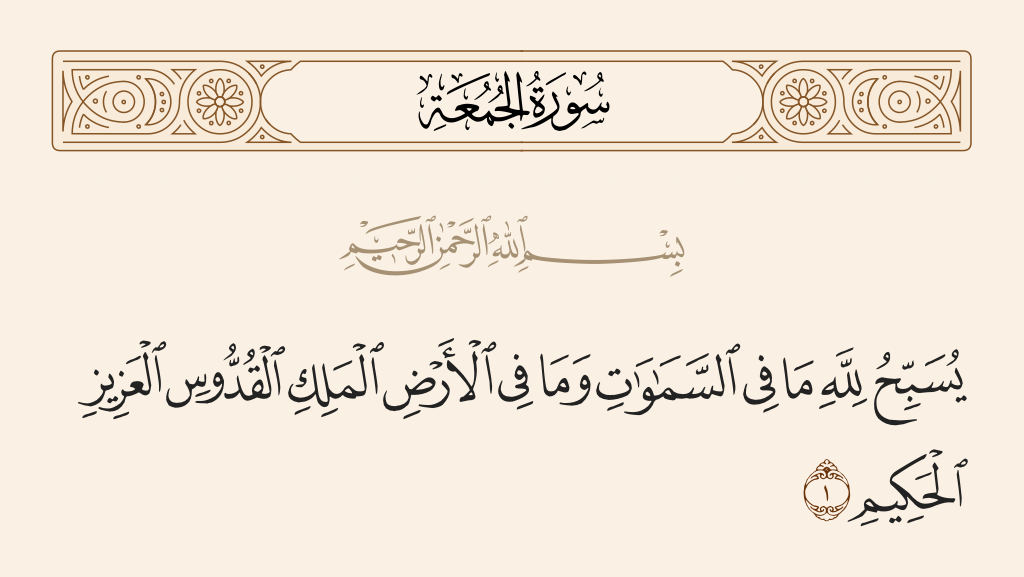 سُورَةُ الجُمُعَةِ
بِسْمِ ٱللَّهِ ٱلرَّحْمَٰنِ ٱلرَّحِيمِ
يُسَبِّحُ لِلَّهِ مَا فِى ٱلسَّمَٰوَٰتِ وَمَا فِى ٱلْأَرْضِ ٱلْمَلِكِ ٱلْقُدُّوسِ ٱلْعَزِيزِ
ٱلْحَكِيمِ ١